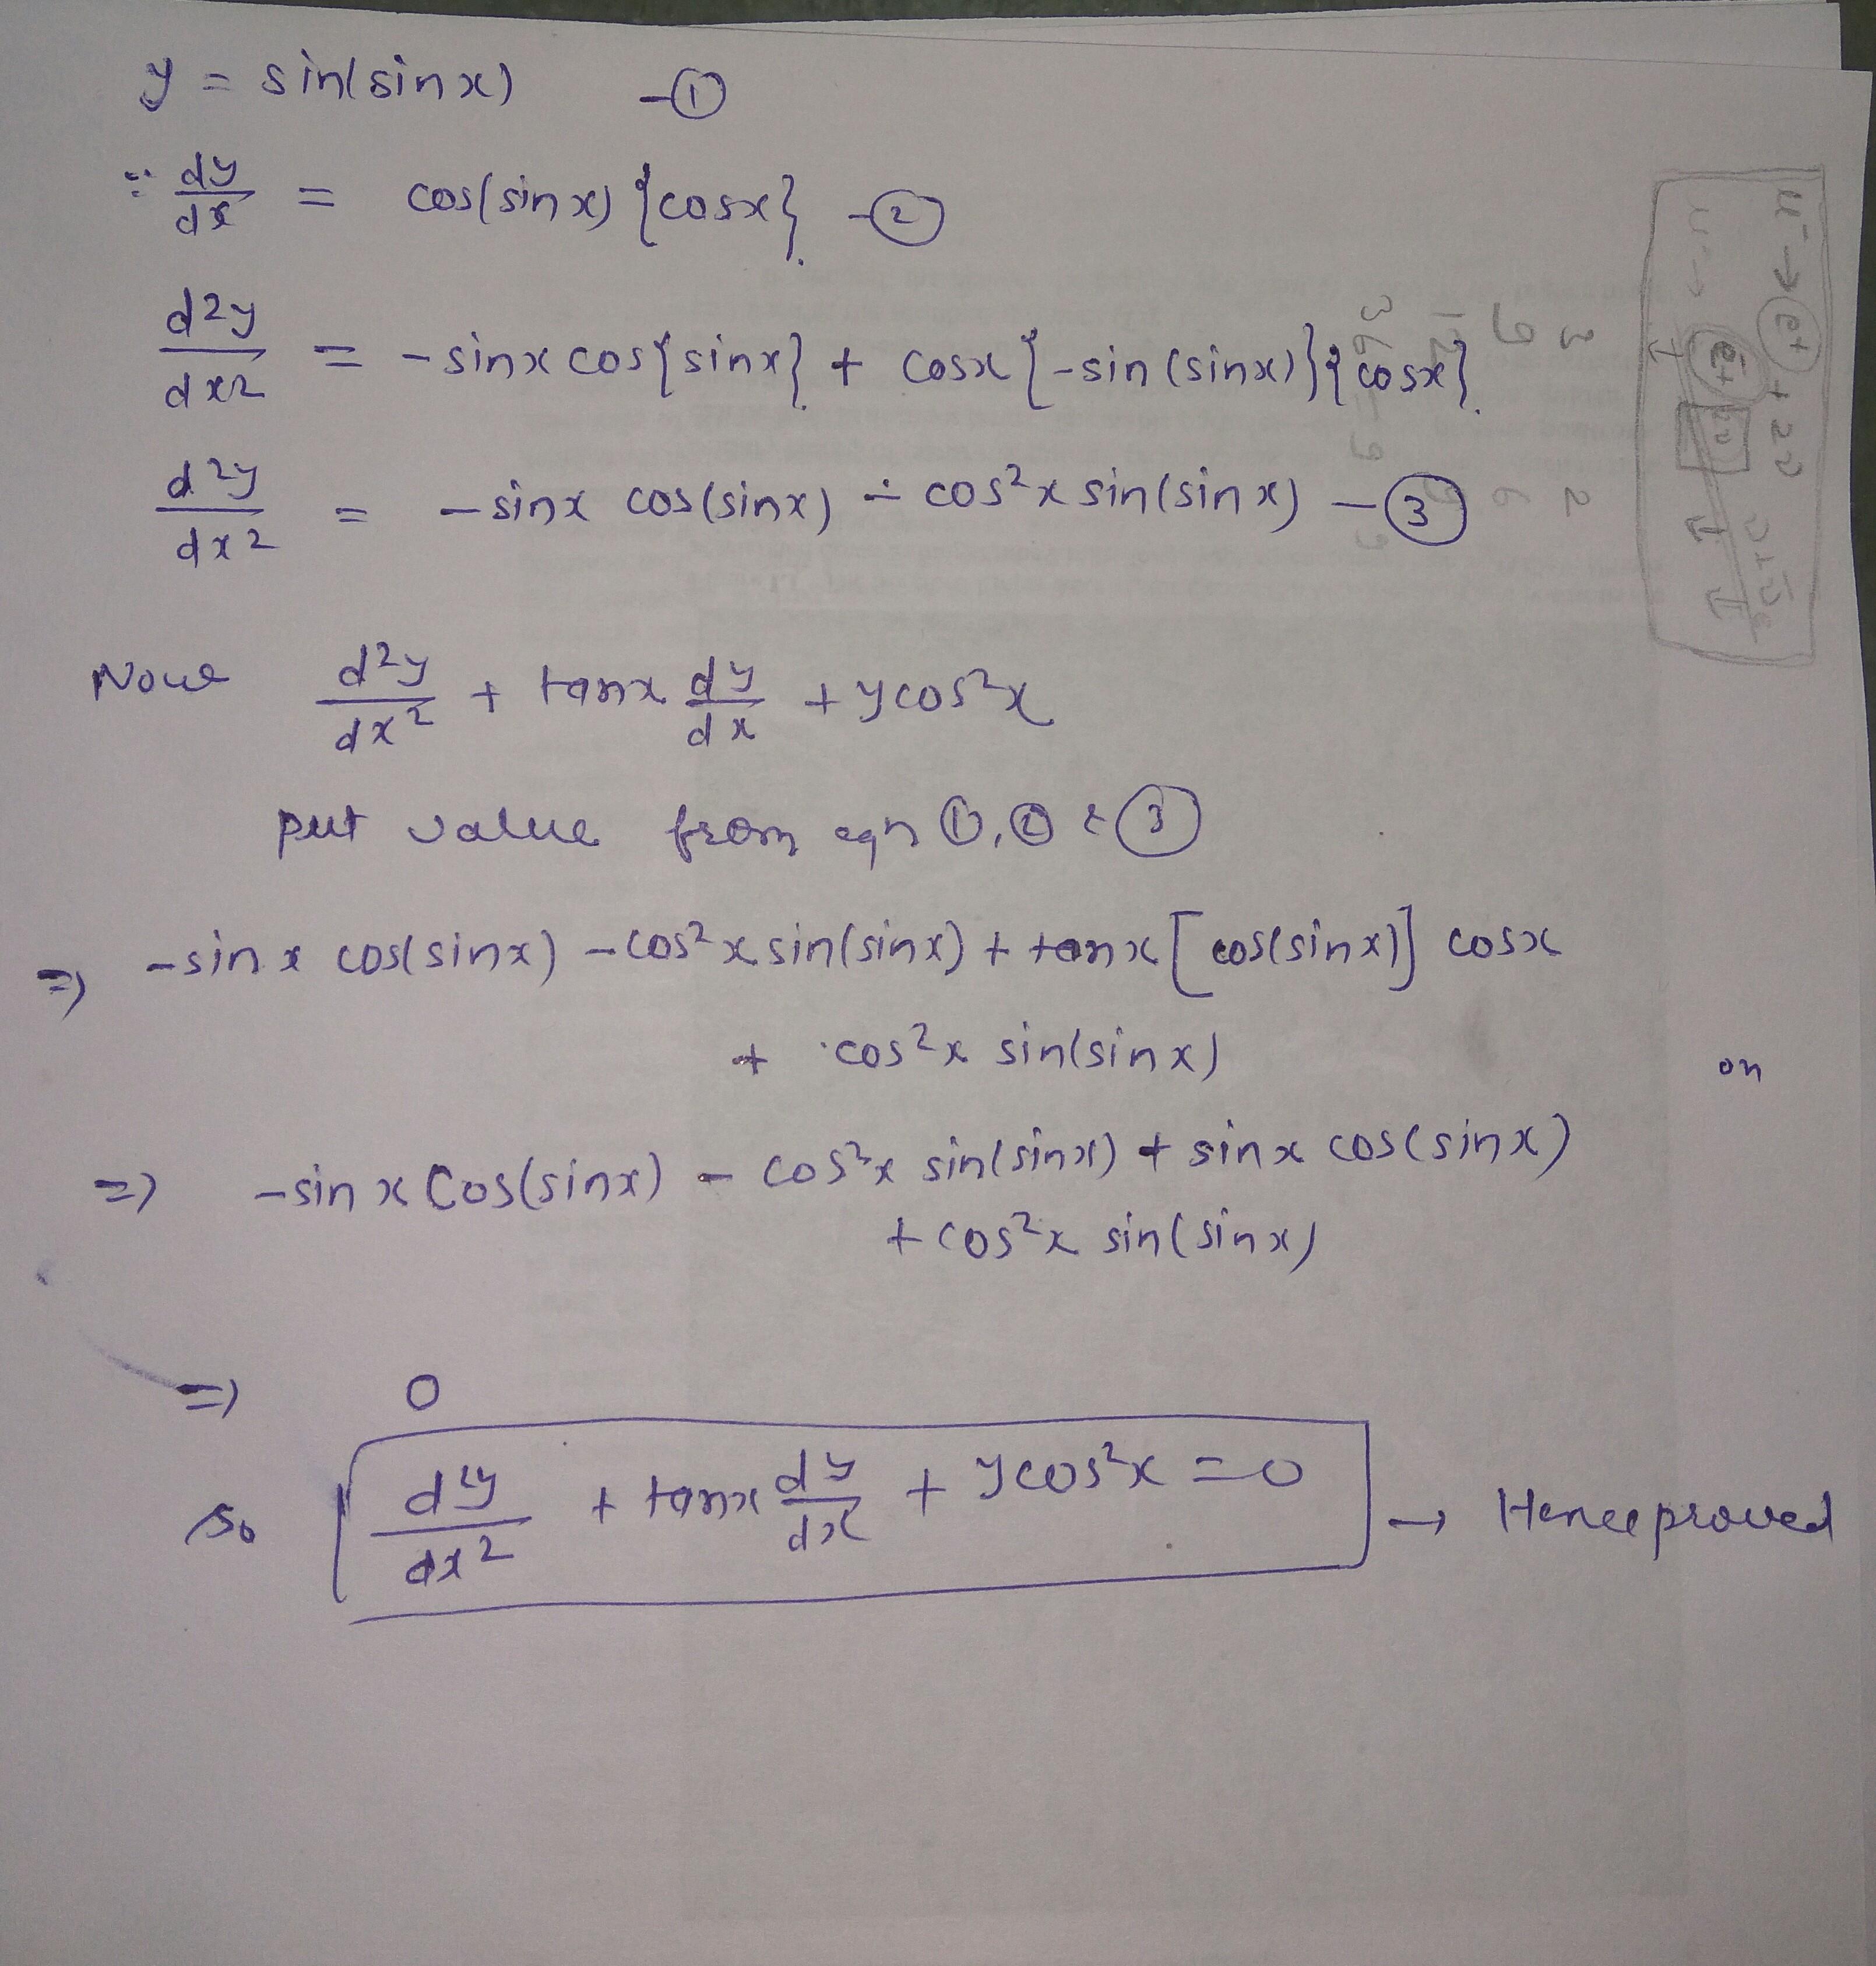 y = sin(sinx) -①
∵ dy/dx = cos(sinx) {cosx} -②
d2y/dx2 = -sinx cos{sinx} + cosx {-sin(sinx)}{cosx}
d2y/dx2 = -sinx cos(sinx) - cos²x sin(sinx) -③
Now d²y/dx² + tanx dy/dx + ycos²x
put value from eqn ①,② & ③
=> -sinx cos(sinx) - cos²x sin(sinx) + tanx [cos(sinx)] cosx
+ cos²x sin(sinx)
on
=> -sinx Cos(sinx) - cos²x sin(sinx) + sinx cos(sinx)
+ cos²x sin(sinx)
=> 0
So d²y/dx2 + tanx dy/dx + ycos²x = 0 → Hence proved